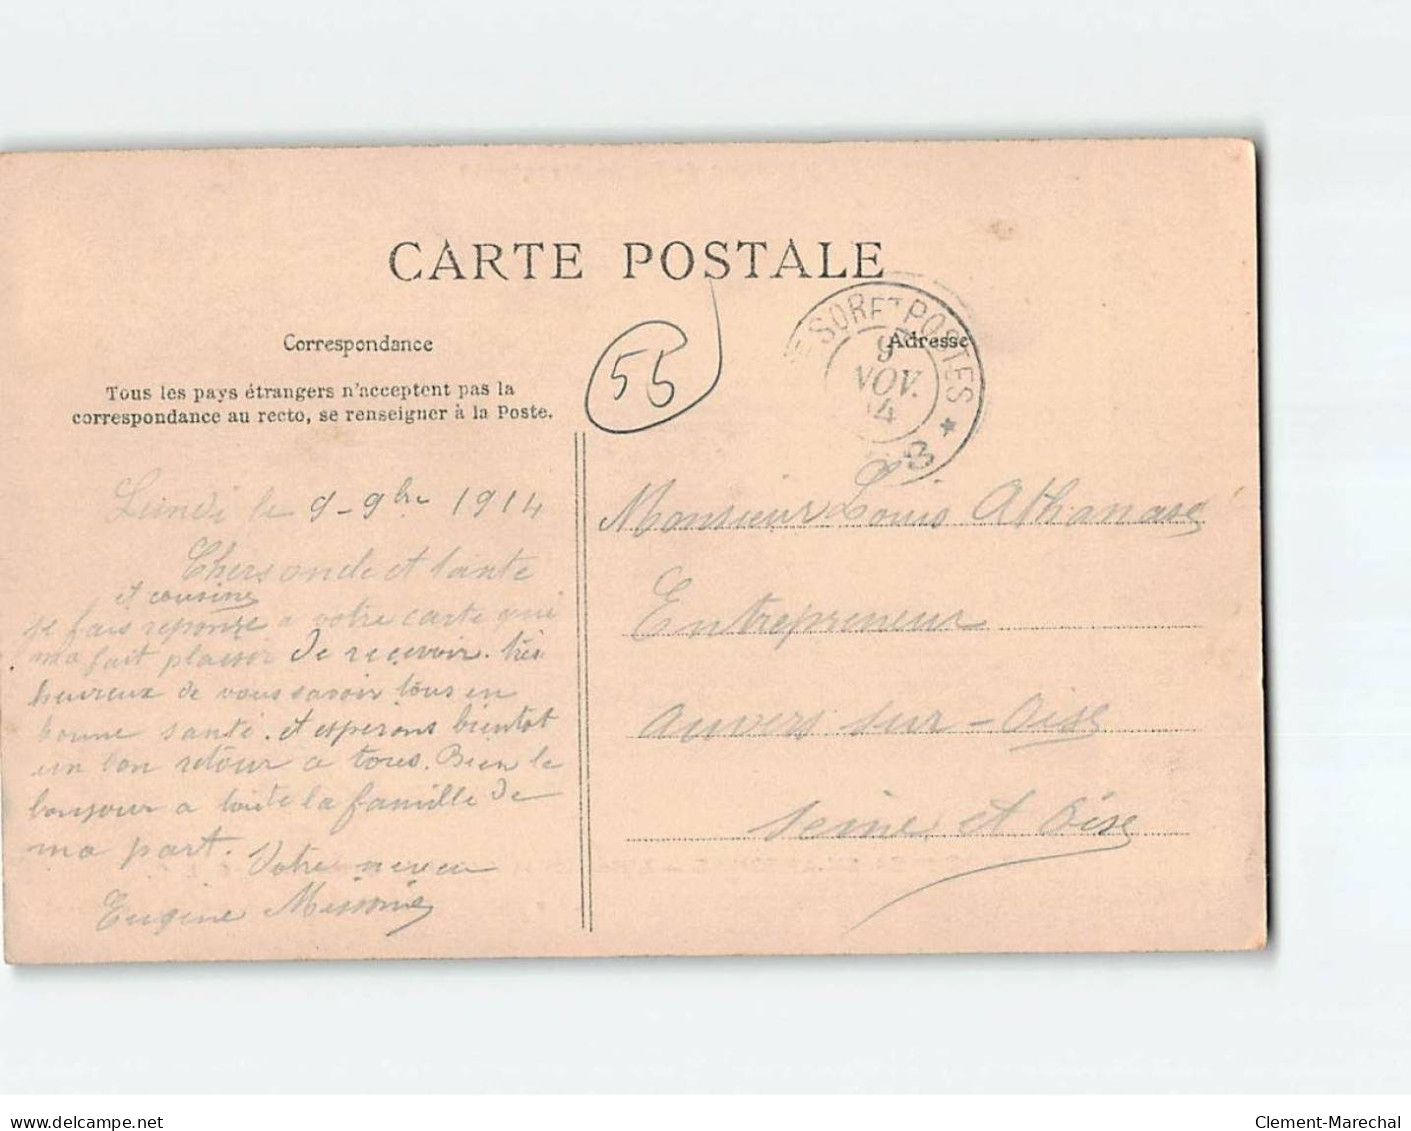 CARTE POSTALE
Correspondance
Tous les pays étrangers n'acceptent pas la
correspondance au recto, se renseigner à la Poste.
55
SOR ET POSTES
9
NOV.
14
Adresse
Lundi le 9-9bre 1914
Chers oncle et tante
et cousine
je fais reponse a votre carte qui
ma fait plaisir de recevoir. très
heureux de vous savoir tous en
bonne santé. et esperons bientot
un bon retour a tous. Bien le
bonjour a toute la famille de
ma part. Votre neveu
Eugène
Monsieur Louis Athanase
Entrepreneur
Auvers sur-Oise
Seine et Oise
delcampe.net
Clement-Marechal